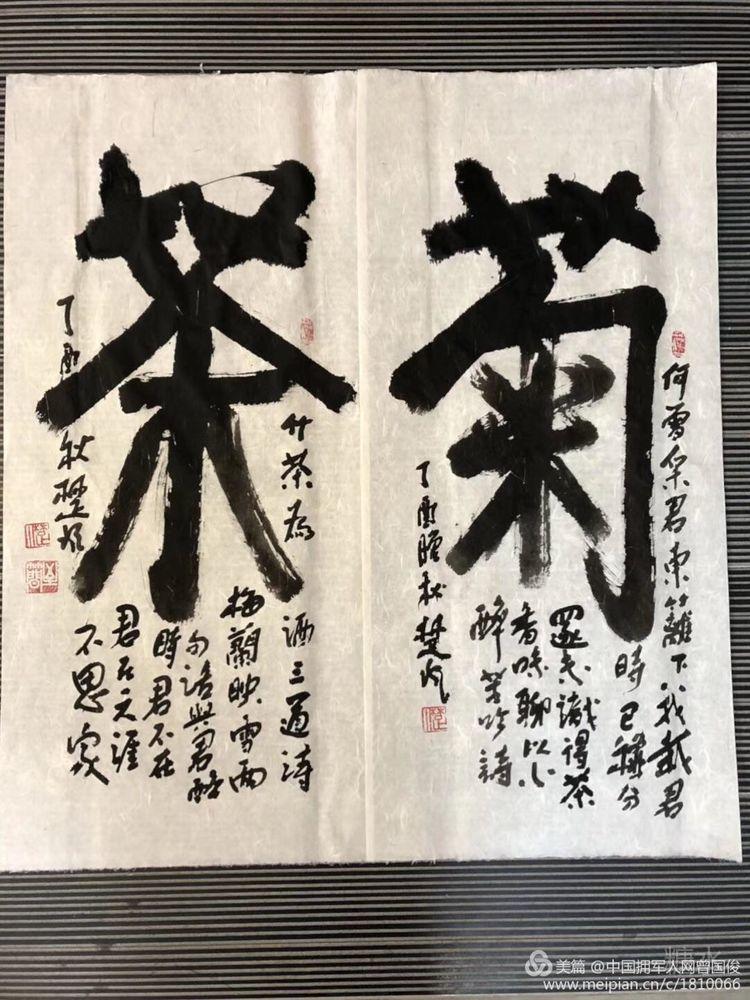 菊
何需采君東籬下我栽君
時已分
識得茶
香味聊以心
醉苦吟詩
丁酉秋楚风
茶
竹茶為
酒三道詩
梅蘭映雪兩
句語與君酩
時君不在
君在天涯
不思家
丁酉
秋楚风
美篇 @中国拥军人网曾国俊
www.meipian.cn/c/1810066